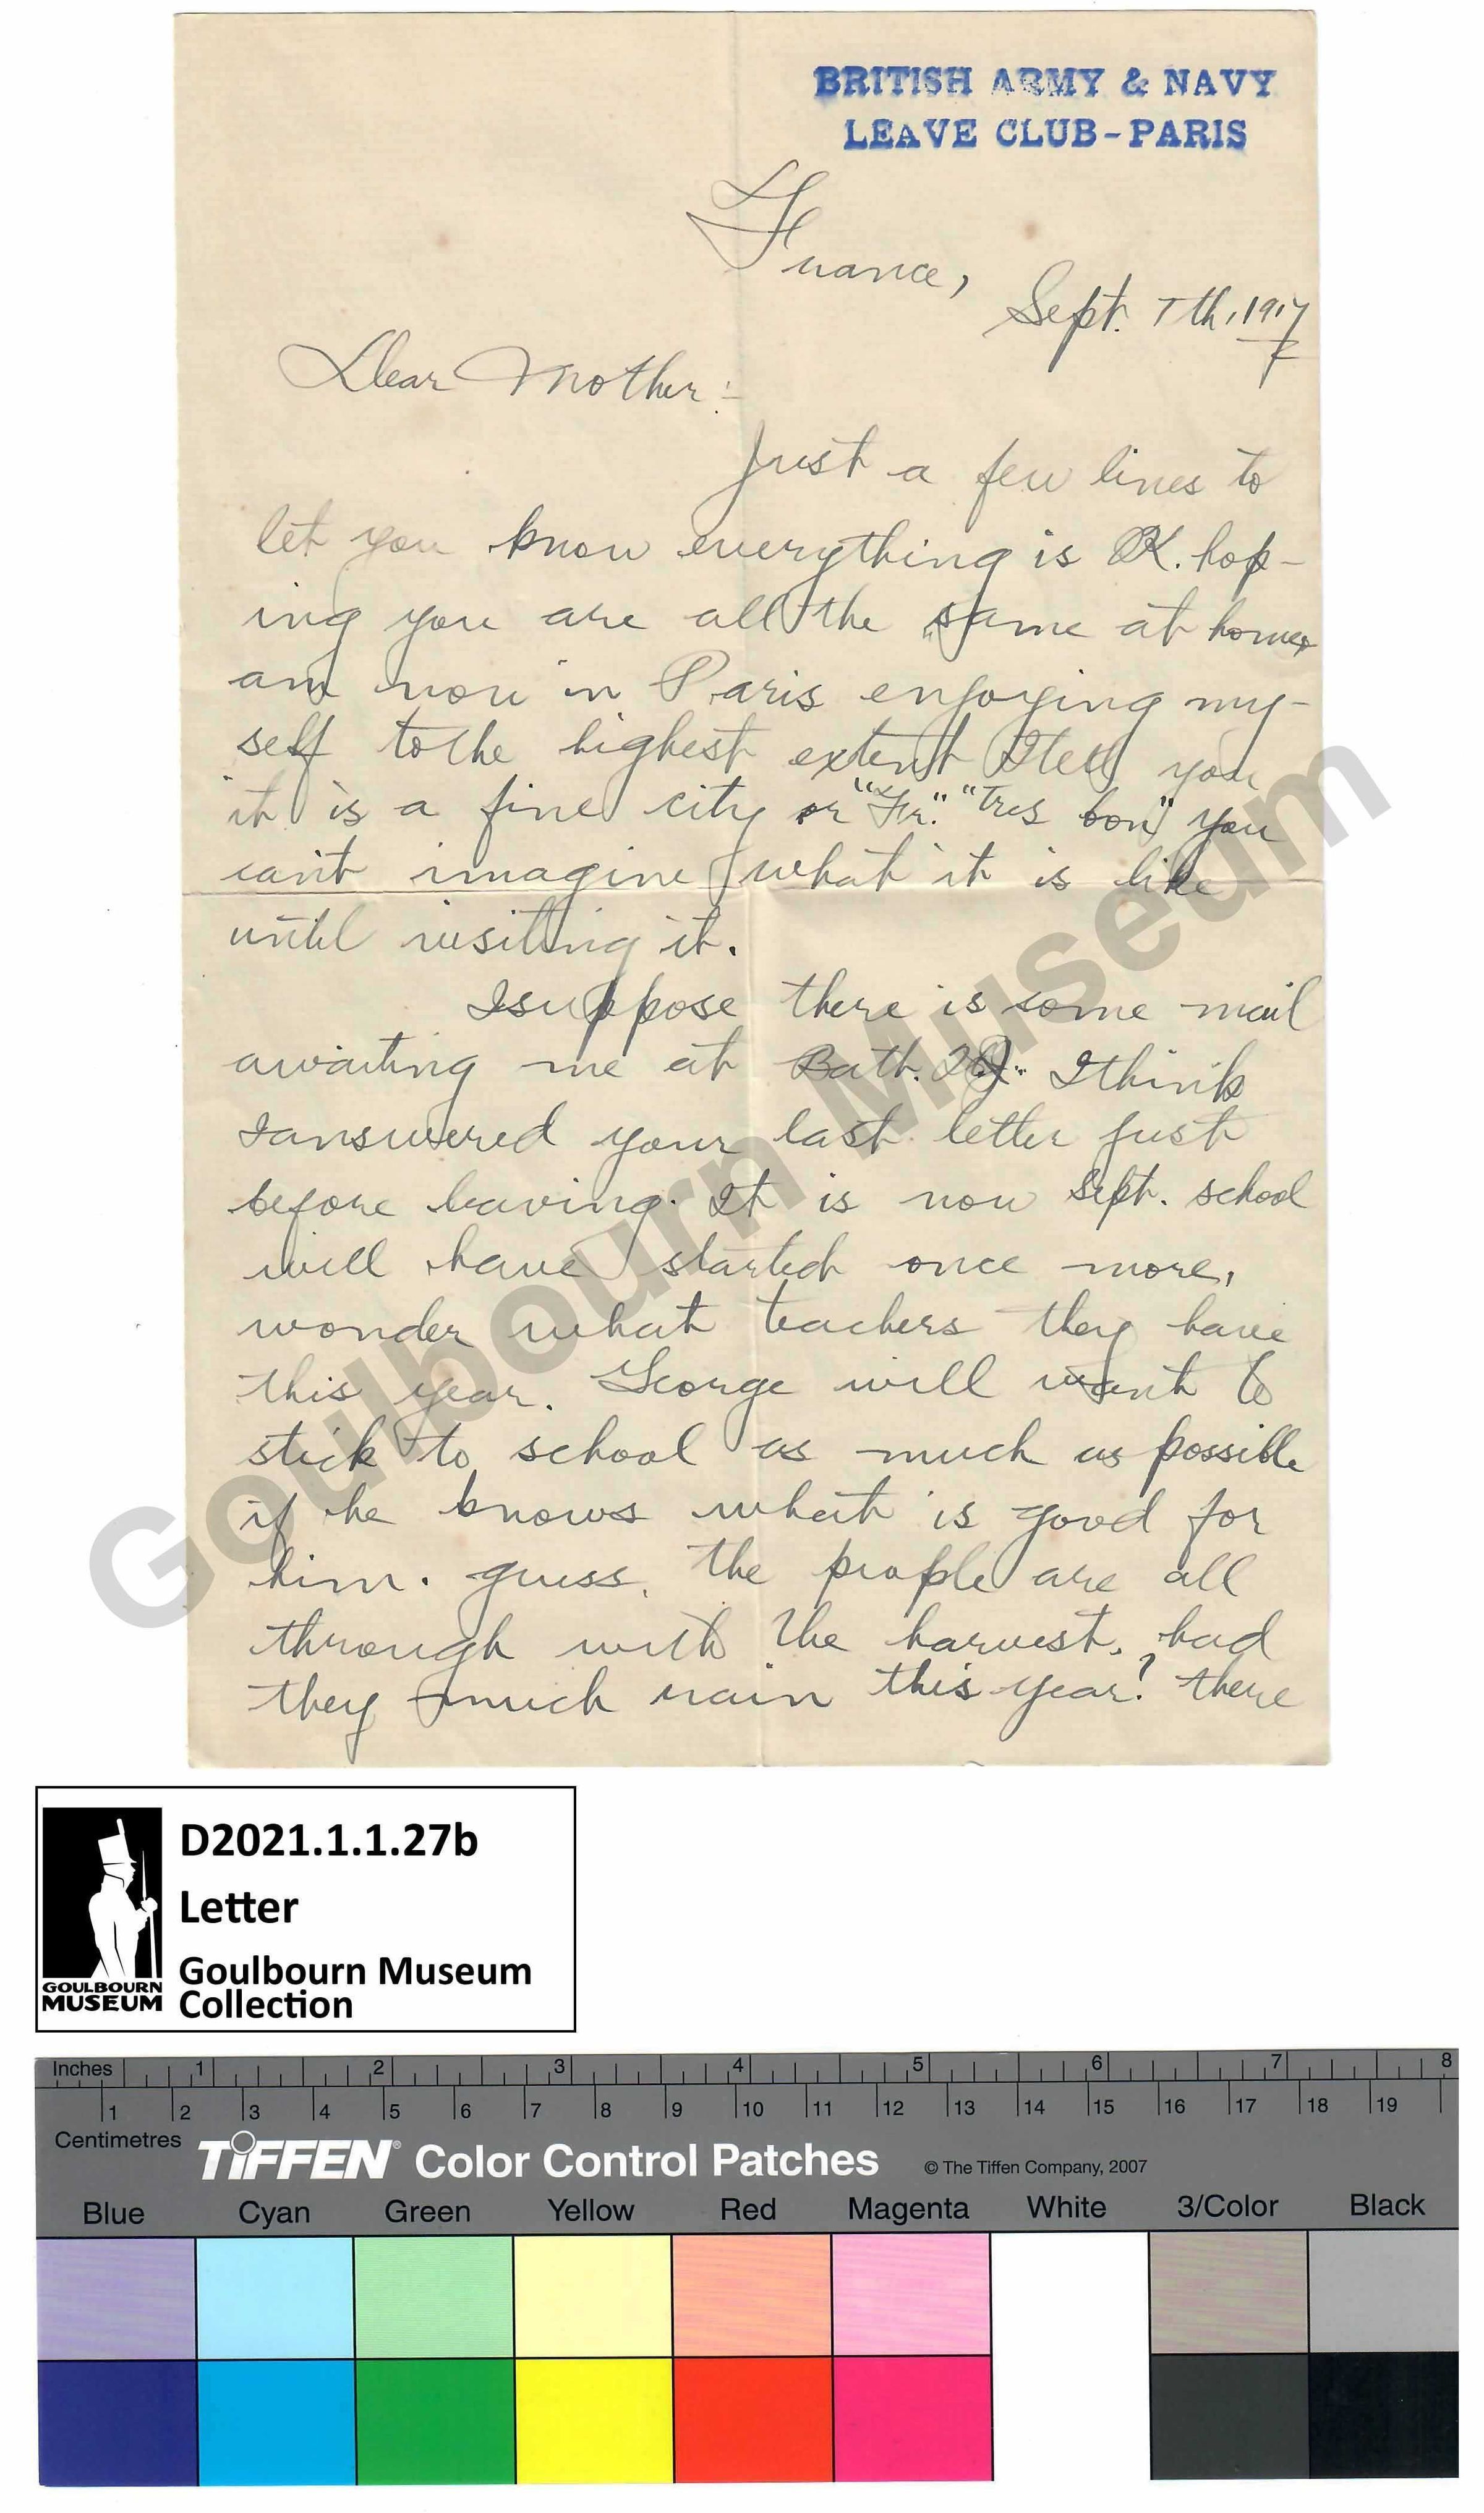 BRITISH ARMY & NAVY
LEAVE CLUB-PARIS
France,
Sept. 7th, 1917
Dear Mother:-
Just a few lines to
let you know everything is OK. hop-
ing you are all the same at home,
am now in Paris enjoying my-
self to the highest extent I tell you
it is a fine city or "Fr." "Tres bon" you
can't imagine what it is like
until visiting it.
I suppose there is some mail
awaiting me at Batt.
I think
I answered your last letter just
before leaving. It is now Sept. school
will have started once more,
wonder what teachers they have
this year. George will want to
stick to school as much as possible
if he knows what is good for
him. guess, the people are all
through with the harvest, had
they much rain this year? there
Goulbourn Museum
D2021.1.1.27b
Letter
Goulbourn Museum
Collection
GOULBOURN
MUSEUM
Inches 1 2 3 4 5 6 7 8
1 2 3 4 5 6 7 8 9 10 11 12 13 14 15 16 17 18 19
Centimetres
TIFFEN® Color Control Patches © The Tiffen Company, 2007
Blue Cyan Green Yellow Red Magenta White 3/Color Black